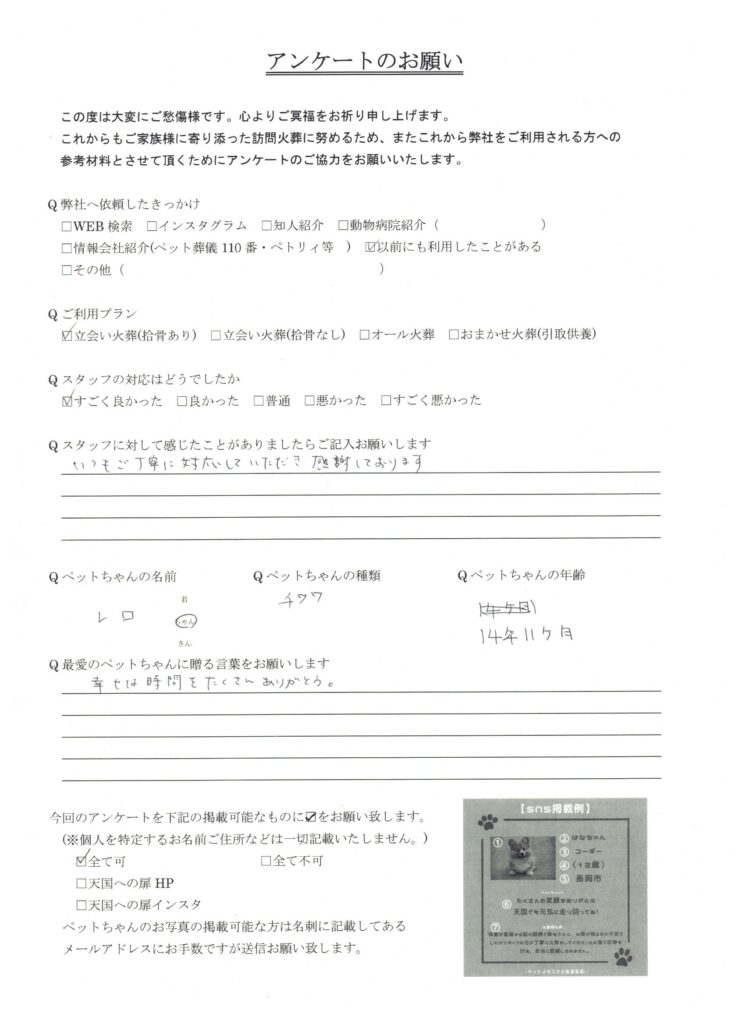 アンケートのお願い
この度は大変にご愁傷様です。心よりご冥福をお祈り申し上げます。
これからもご家族様に寄り添った訪問火葬に努めるため、またこれから弊社をご利用される方への
参考材料とさせて頂くためにアンケートのご協力をお願いいたします。
Q 弊社へ依頼したきっかけ
□WEB 検索 □インスタグラム □知人紹介 □動物病院紹介（ ）
□情報会社紹介(ペット葬儀 110 番・ペトリィ等 ) ☑以前にも利用したことがある
□その他（ ）
Q ご利用プラン
☑立会い火葬(拾骨あり) □立会い火葬(拾骨なし) □オール火葬 □おまかせ火葬(引取供養)
Q スタッフの対応はどうでしたか
☑すごく良かった □良かった □普通 □悪かった □すごく悪かった
Q スタッフに対して感じたことがありましたらご記入お願いします
いつもご丁寧に対応していただき感謝しております
Q ペットちゃんの名前 Q ペットちゃんの種類 Q ペットちゃんの年齢
君
レロ ちゃん チワワ
さん
14年11ケ月
Q 最愛のペットちゃんに贈る言葉をお願いします
幸せな時間をたくさんありがとう。
今回のアンケートを下記の掲載可能なものに☑をお願い致します。
(※個人を特定するお名前ご住所などは一切記載いたしません。)
☑全て可 □全て不可
□天国への扉 HP
□天国への扉インスタ
ペットちゃんのお写真の掲載可能な方は名刺に記載してある
メールアドレスにお手数ですが送信お願い致します。
【sns掲載例】
① ② はなちゃん
③ コーギー
④ (12歳)
⑤ 長岡市
⑥ たくさんの笑顔をありがとう
天国でも元気に走り回ってね!
⑦